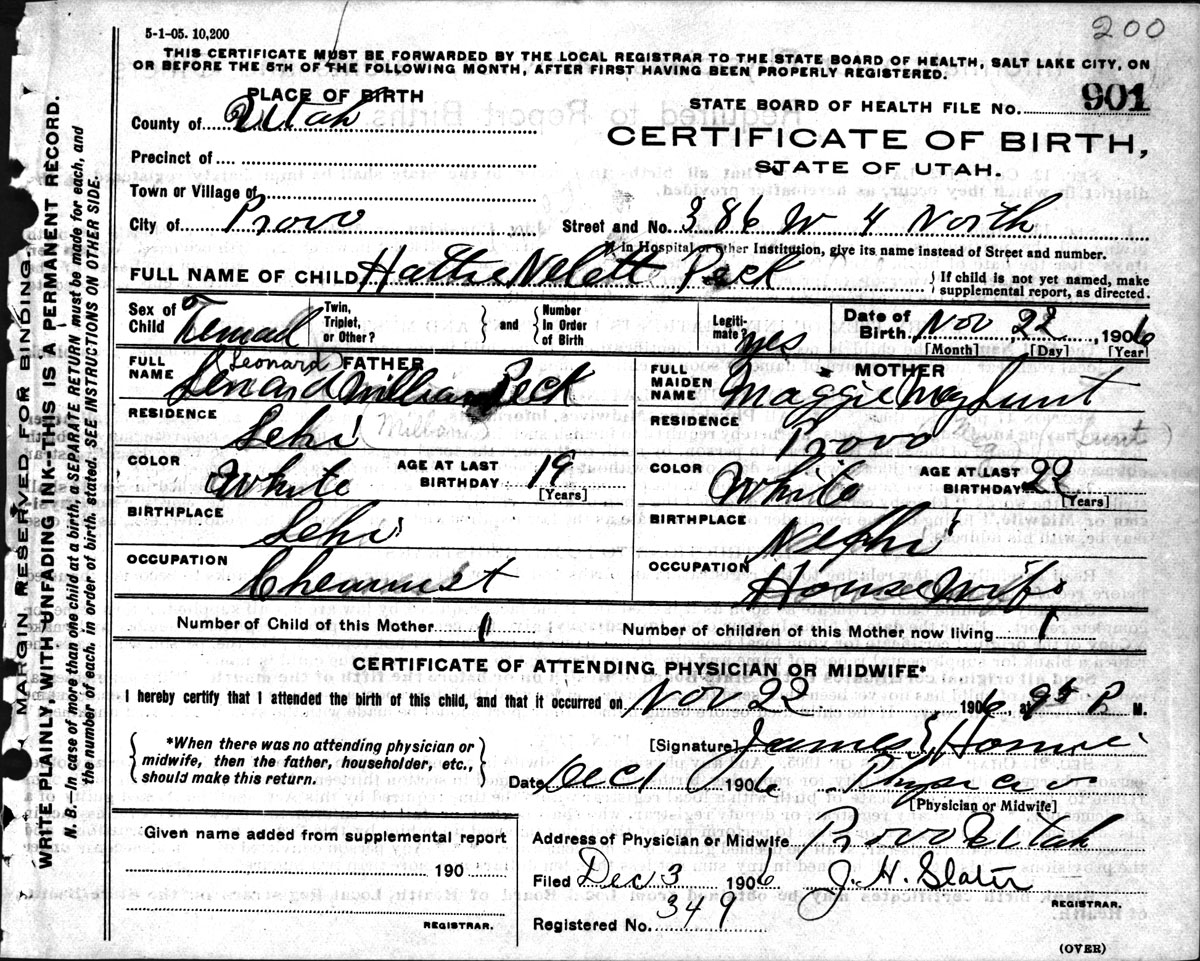 200
5-1-05. 10,200
THIS CERTIFICATE MUST BE FORWARDED BY THE LOCAL REGISTRAR TO THE STATE BOARD OF HEALTH, SALT LAKE CITY, ON
OR BEFORE THE 5TH OF THE FOLLOWING MONTH, AFTER FIRST HAVING BEEN PROPERLY REGISTERED.
PLACE OF BIRTH
STATE BOARD OF HEALTH FILE No. 901
County of Utah
CERTIFICATE OF BIRTH,
STATE OF UTAH.
Precinct of
Town or Village of
City of Provo Street and No. 386 W 4 North
If in Hospital or other Institution, give its name instead of Street and number.
FULL NAME OF CHILD Hattie Nelett Peck { If child is not yet named, make
supplemental report, as directed.
Sex of Child Femail
Twin, Triplet, or Other?
and
Number In Order of Birth
Legiti-mate? yes
Date of Birth Nov 22, 1906
[Month] [Day] [Year]
FATHER
FULL NAME Leonard
Lenard William Peck
RESIDENCE
Lehi (Milbourn)
COLOR White
AGE AT LAST BIRTHDAY 19
[Years]
BIRTHPLACE
Lehi
OCCUPATION
Chearmist
MOTHER
FULL MAIDEN NAME Maggie May Lunt
RESIDENCE
Provo
Lunt)
COLOR White
AGE AT LAST BIRTHDAY 22
[Years]
BIRTHPLACE
Nephi
OCCUPATION
House Wife
Number of Child of this Mother 1 Number of children of this Mother now living 1
CERTIFICATE OF ATTENDING PHYSICIAN OR MIDWIFE*
I hereby certify that I attended the birth of this child, and that it occurred on Nov 22 1906, at P M.
*When there was no attending physician or
midwife, then the father, householder, etc.,
should make this return.
[Signature] James
Date Dec 1 1906 Physician
[Physician or Midwife]
Given name added from supplemental report
190
REGISTRAR.
Address of Physician or Midwife Provo Utah
Filed Dec 3 1906 J. H. Slater
REGISTRAR.
Registered No. 349
(OVER)
MARGIN RESERVED FOR BINDING.
WRITE PLAINLY, WITH UNFADING INK—THIS IS A PERMANENT RECORD.
N. B.—In case of more than one child at a birth, a SEPARATE RETURN must be made for each, and
the number of each, in order of birth, stated. SEE INSTRUCTIONS ON OTHER SIDE.